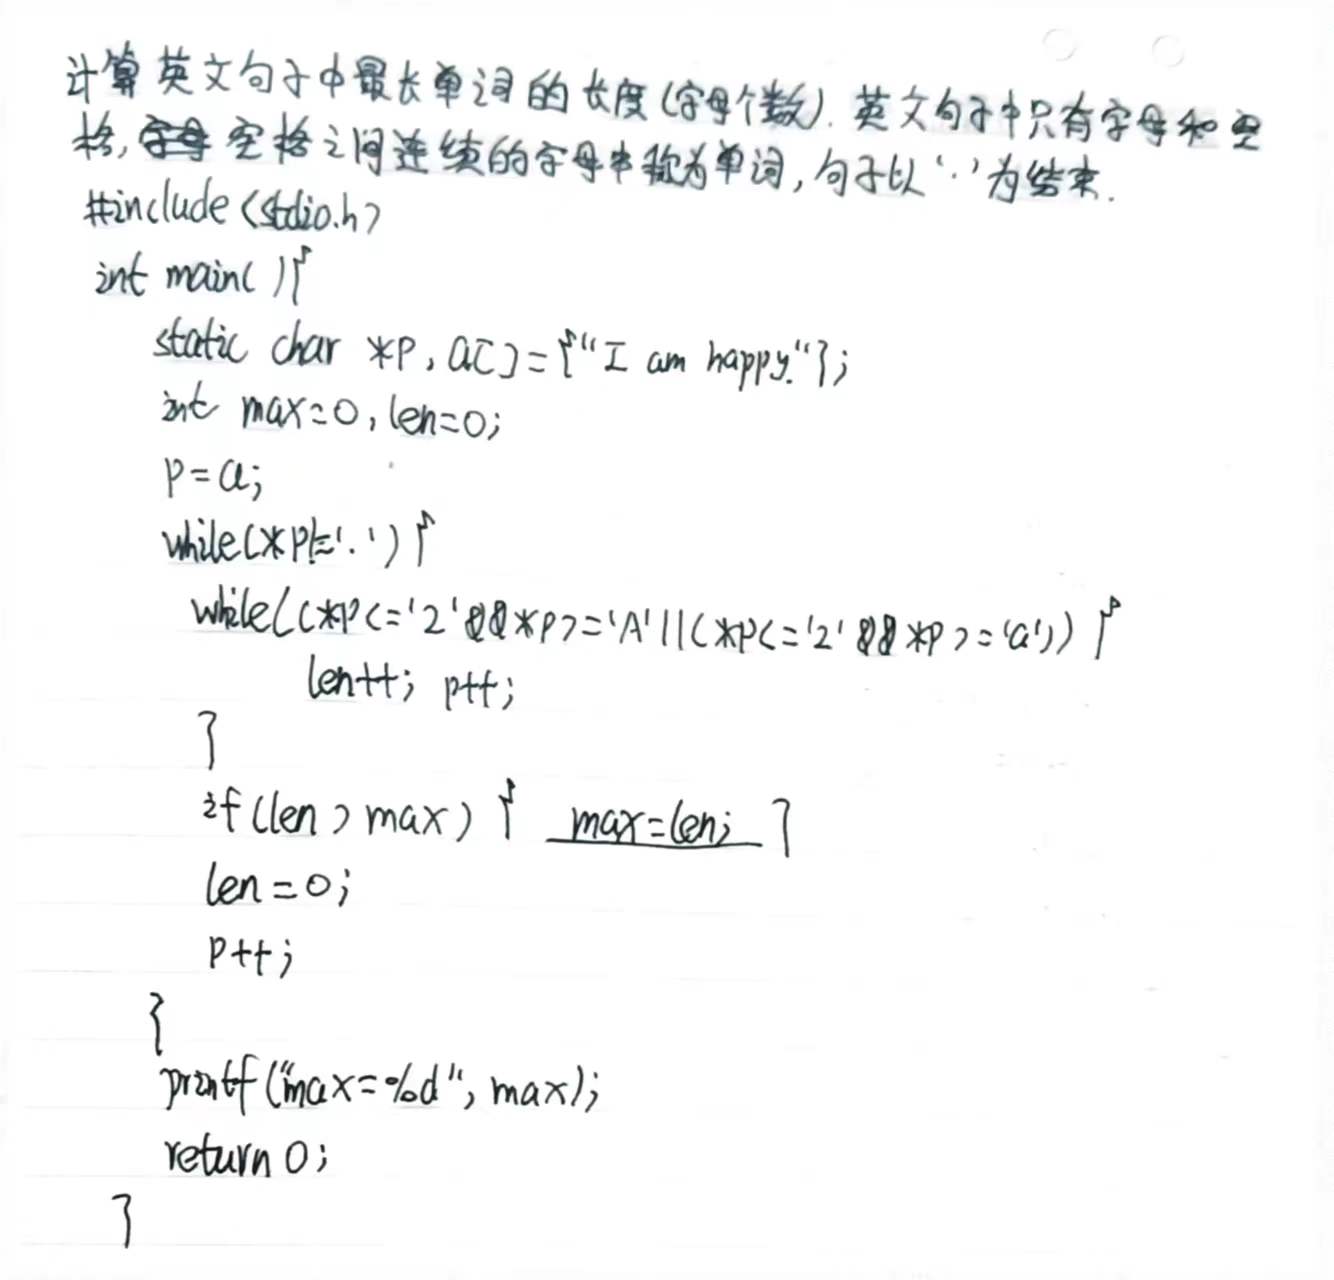 计算英文句子中最长单词的长度(字母个数).英文句子中只有字母和空
格,空格之间连续的字母串称为单词,句子以'.'为结束.
#include<stdio.h>
int main(){
static char *p,a[]={"I am happy."};
int max=0,len=0;
p=a;
while(*p!='.'){
while((*p<='Z'&&*p>='A'||(*p<='z'&&*p>='a')){
len++; p++;
}
if(len>max){ max=len; }
len=0;
p++;
}
printf("max=%d",max);
return 0;
}